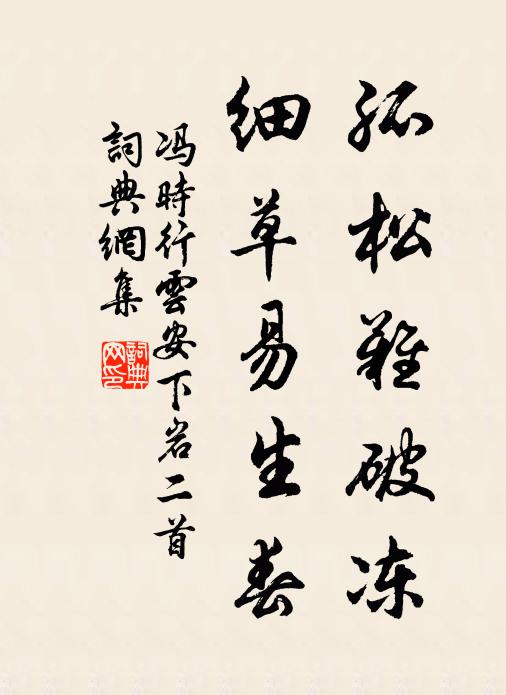 孤松難破凍
細草易生春
馮時行雲安下岩二首
詞典網集
詞典網印